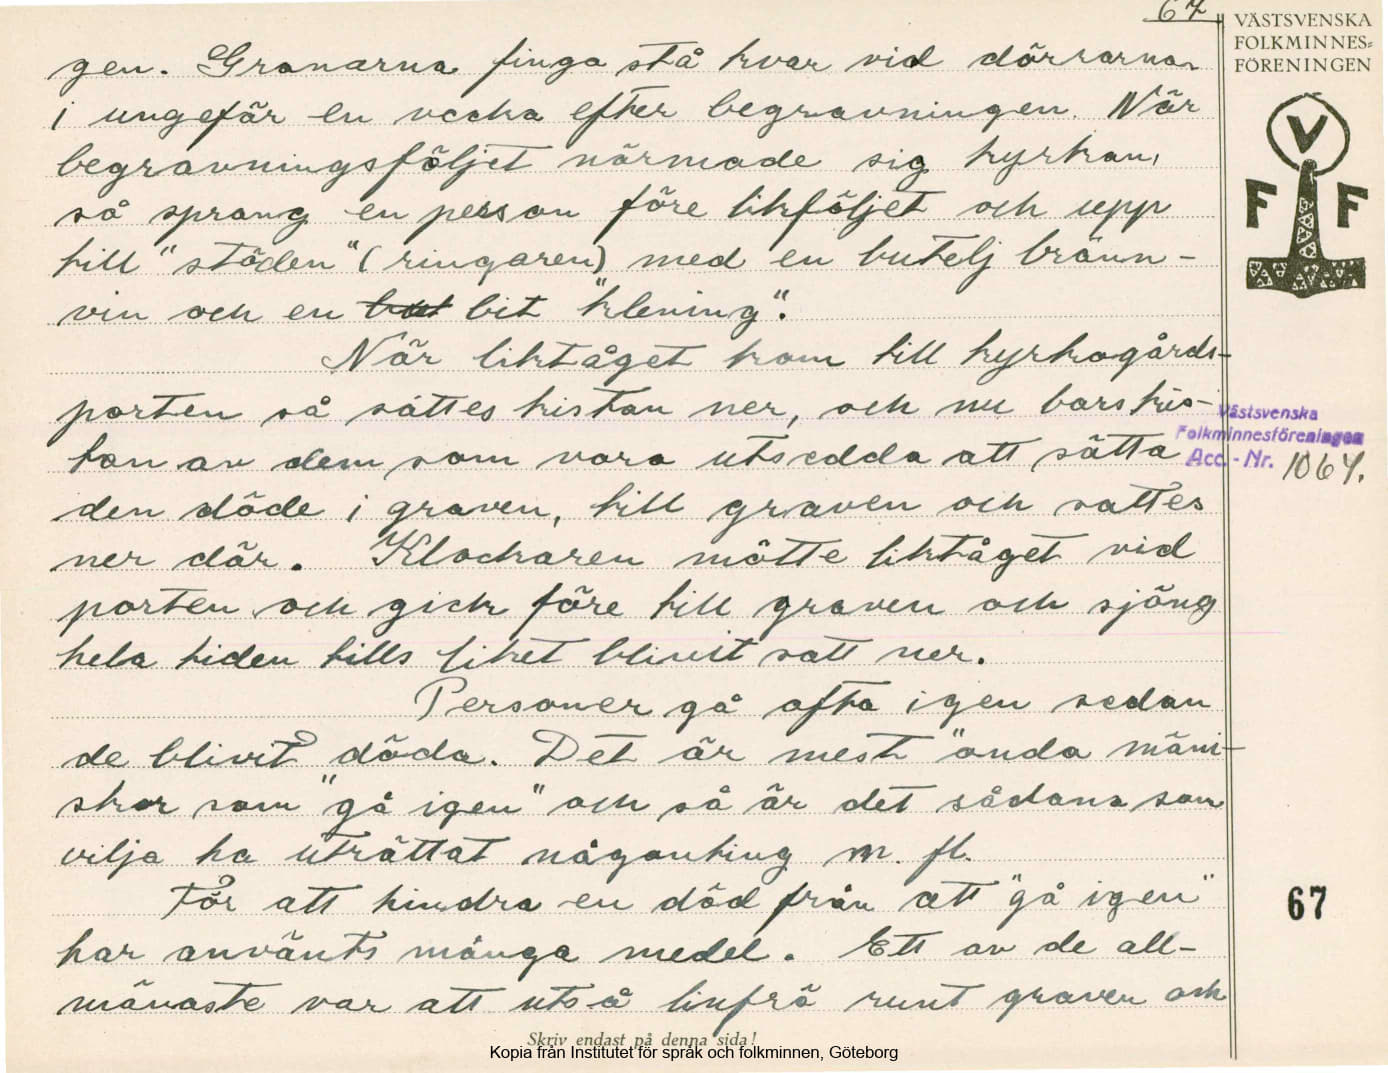 67
VÄSTSVENSKA
FOLKMINNES=
FÖRENINGEN
V
F F
gen. Granarna finga stå kvar vid dörrarna
i ungefär en vecka efter begravningen. När
begravningsföljet närmade sig kyrkan,
så sprang en person före likföljet och upp
till "stöden" (ringaren) med en butelj bränn-
vin och en bit "klening".
När liktåget kom till kyrkogårds-
porten så sattes kistan ner, och nu bars kis-
tan av dem som voro utsedda att sätta
den döde i graven, till graven och sattes
ner där. Klockaren mötte liktåget vid
porten och gick före till graven och sjöng
hela tiden tills liket blivit satt ner.
Personer gå ofta igen sedan
de blivit döda. Det är mest "onda mäni-
skor som "gå igen" och så är det sådana som
vilja ha uträttat någonting m. fl.
För att hindra en död från att "gå igen"
har använts många medel. Ett av de all-
mänaste var att utså linfrö runt graven och
Västsvenska
Folkminnesföreningen
Acc. - Nr. 1064.
67
Skriv endast på denna sida!
Kopia från Institutet för språk och folkminnen, Göteborg